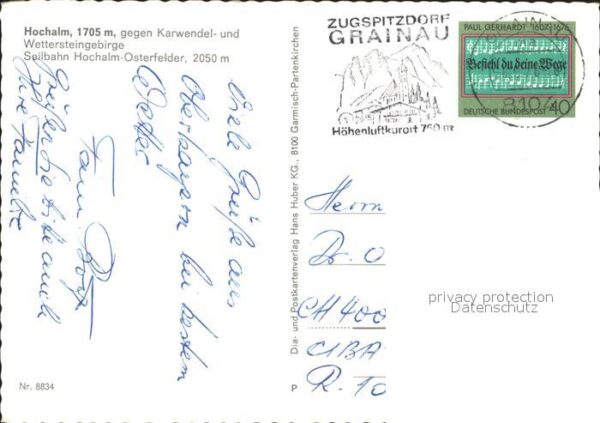 Hochalm, 1705 m, gegen Karwendel- und
Wettersteingebirge
Seilbahn Hochalm-Osterfelder, 2050 m
Viele Grüße aus
Oberbayern bei bestem
Wetter
Fam.
Grüßen Sie bitte auch
Ihre Familie
Nr. 8834
Dia- und Postkartenverlag Hans Huber KG., 8100 Garmisch-Partenkirchen
P
ZUGSPITZDORF
GRAINAU
Höhenluftkurort 750 m
PAUL GERHARDT 1607-1676
Befiehl du deine Wege
DEUTSCHE BUNDESPOST 40
8104
Herrn
Dr. O
CH 400
CIBA
R. 
privacy protection
Datenschutz